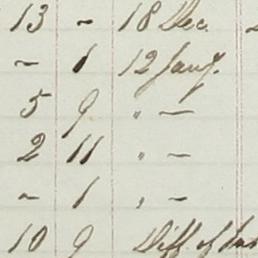 13 - 18 Dec.
- 1 12 Jany.
5 9 " -
2 11 " -
- 1 " -
10 9 Diff. of